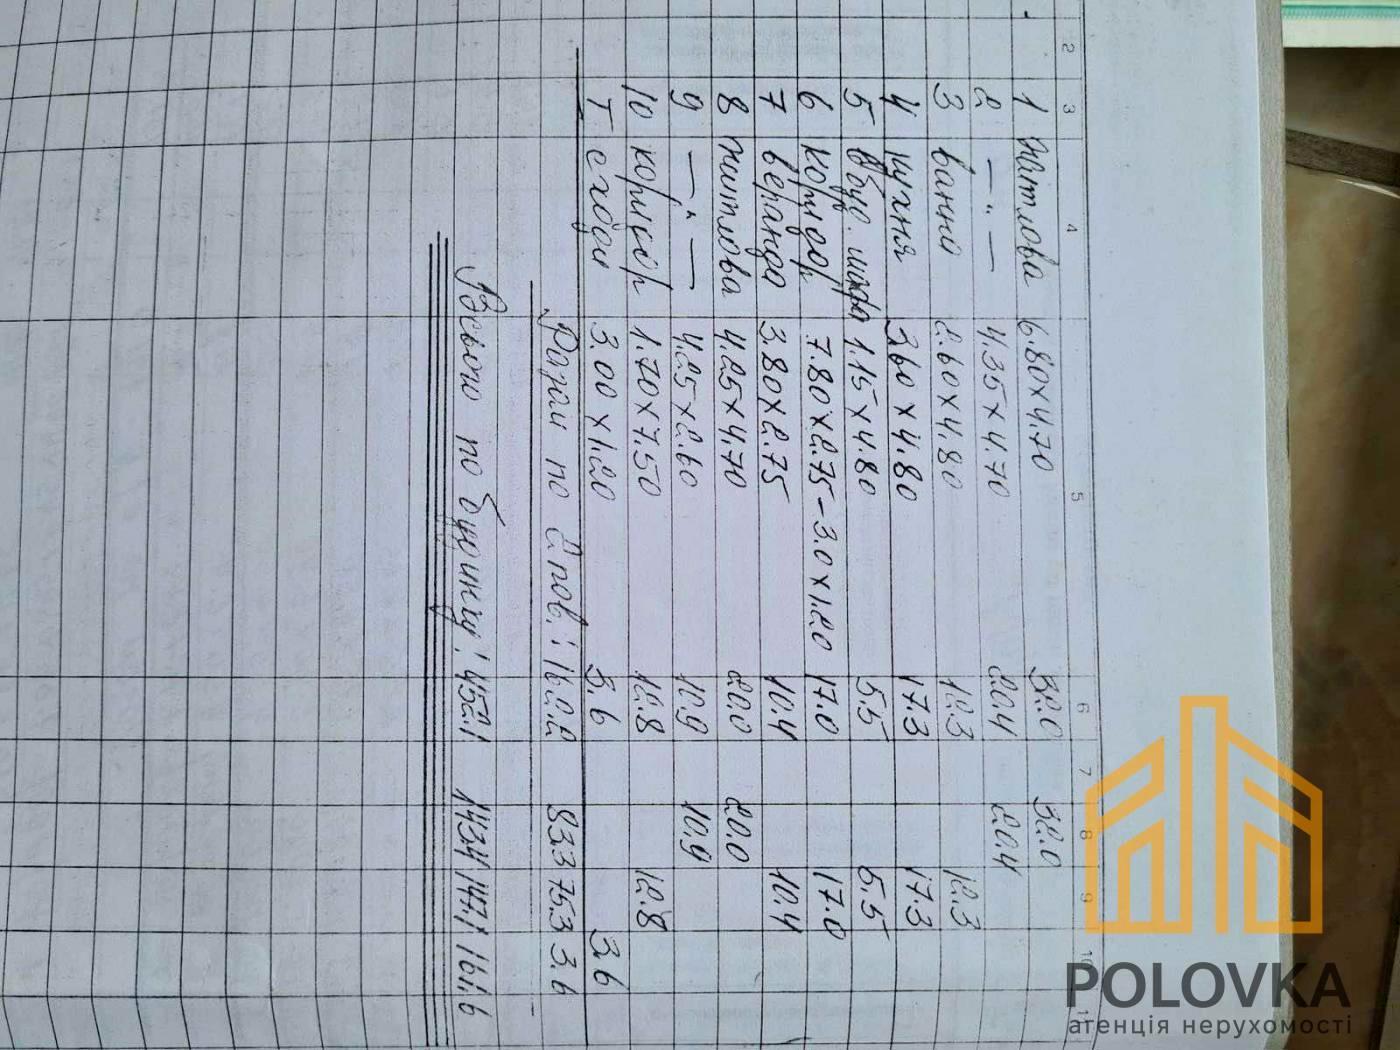 2 3 4 5 6 7 8 9 10 11
1 Житлова 6.80х4.70 32.0 32.0
2 — " — 4.35х4.70 20.4 20.4
3 ванна 2.60х4.80 12.3 12.3
4 кухня 3.60х4.80 17.3 17.3
5 вбуд. шафа 1.15х4.80 5.5 5.5
6 коридор 7.80х2.75-3.0х1.20 17.0 17.0
7 веранда 3.80х2.75 10.4 10.4
8 житлова 4.25х4.70 20.0 20.0
9 — " — 4.25х2.60 10.9 10.9
10 коридор 1.70х7.50 12.8 12.8
Т сходи 3.00х1.20 3.6 3.6
Разом по 2 пов.: 162.2 83.3 75.3 3.6
Всього по будинку: 452.1 143.4 147.1 161.6
POLOVKA
агенція нерухомості